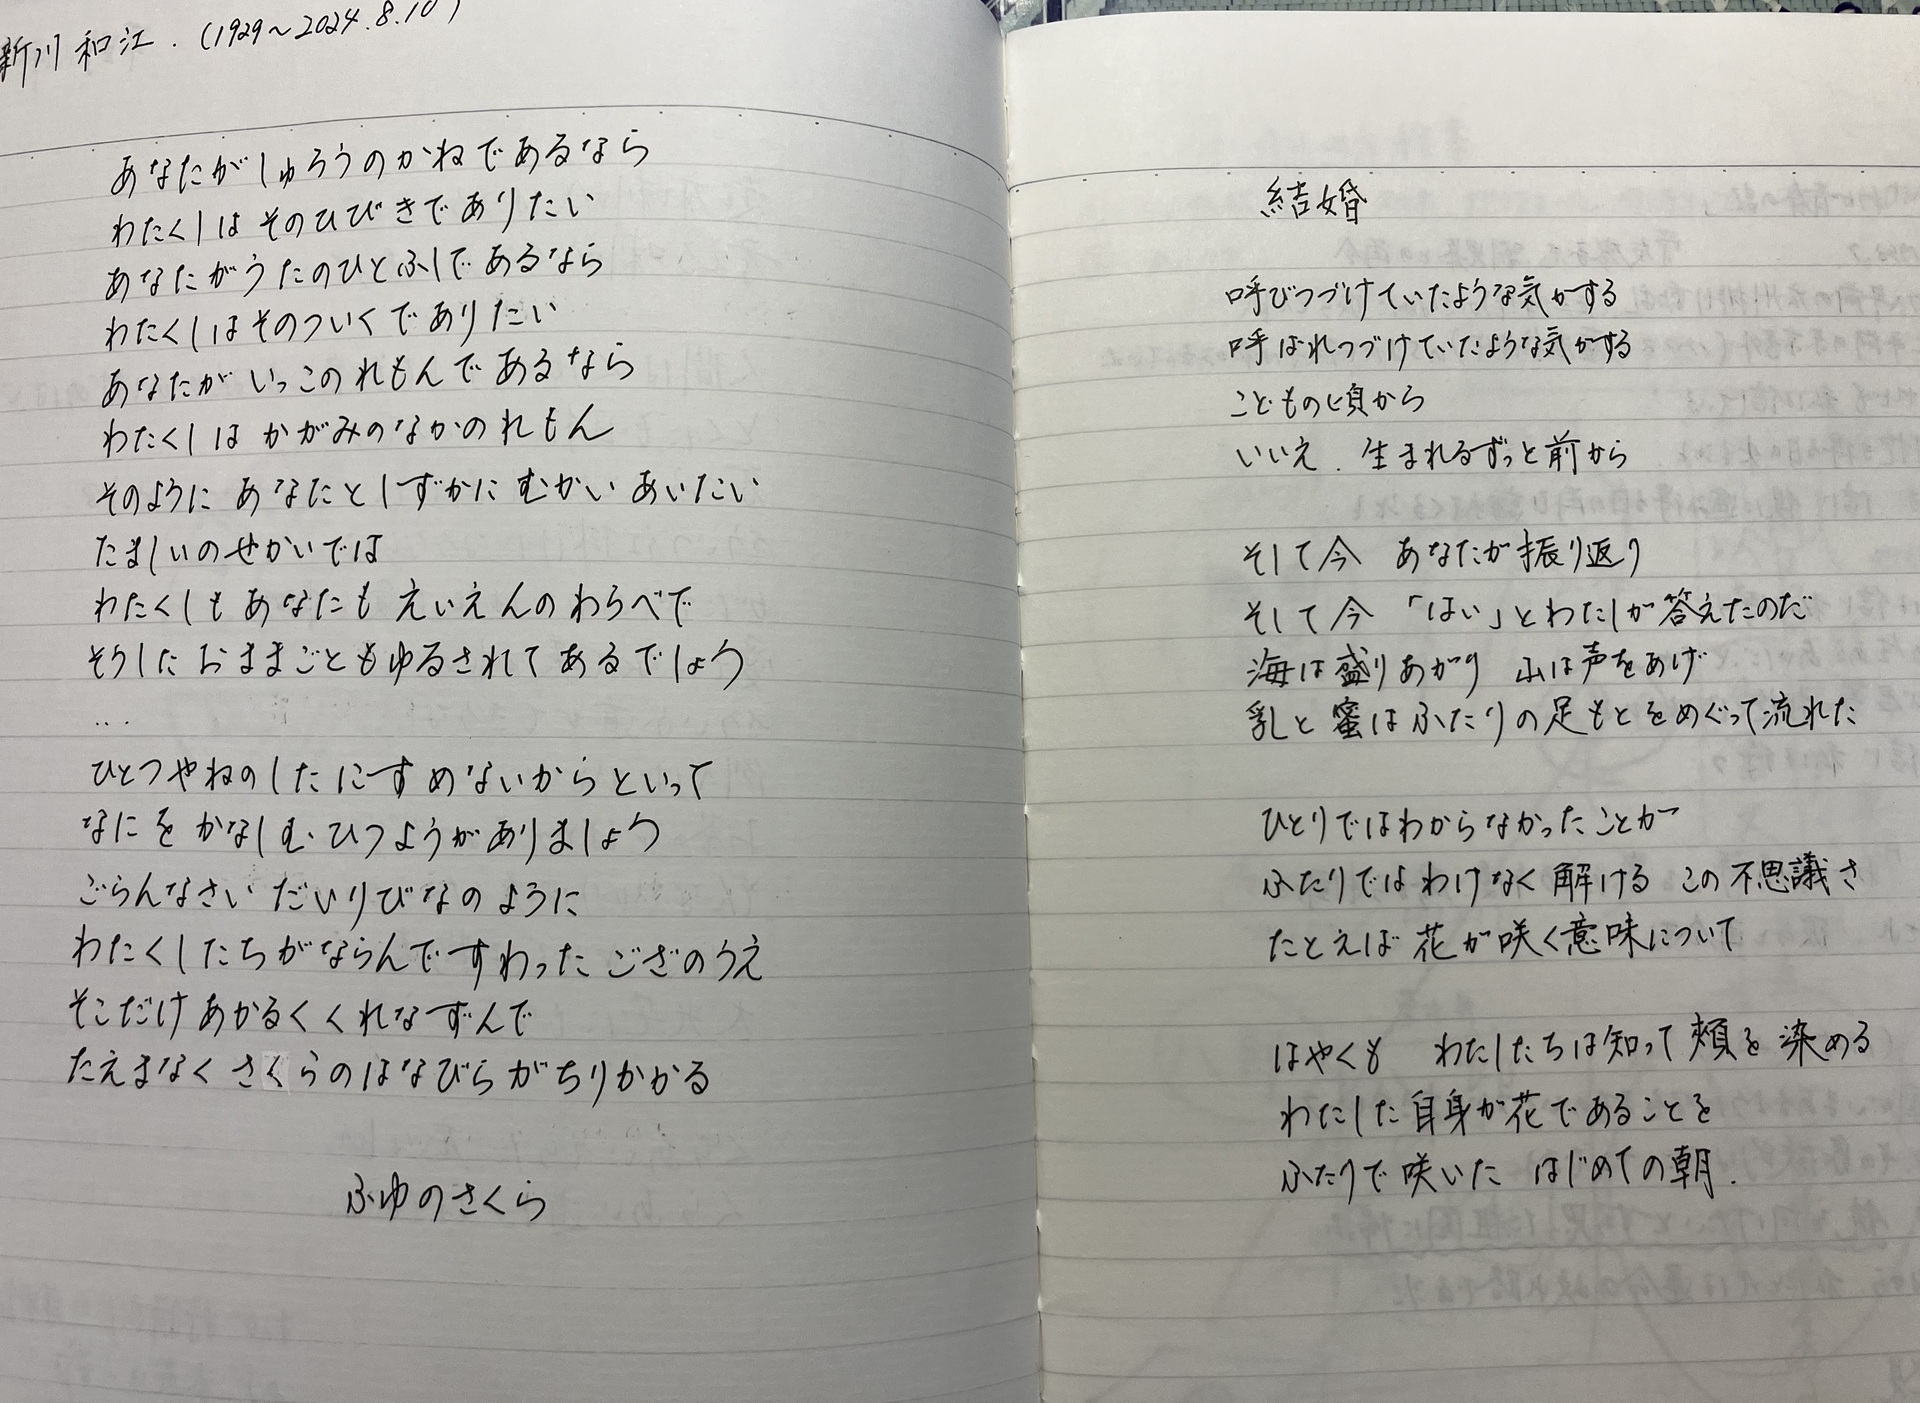 新川和江.（1929～2024.8.10）
あなたがしゅろうのかねであるなら
わたくしはそのひびきでありたい
あなたがうたのひとふしであるなら
わたくしはそのついくでありたい
あなたがいっこのれもんであるなら
わたくしはかがみのなかのれもん
そのように あなたとしずかに むかいあいたい
たましいのせかいでは
わたくしもあなたも えいえんのわらべで
そうした おままごともゆるされてあるでしょう
...
ひとつやねのしたにすめないからといって
なにをかなしむ ひつようがありましょう
ごらんなさい だいりびなのように
わたくしたちがならんですわった ござのうえ
そこだけあかるくくれなずんで
たえまなくさくらのはなびらがちりかかる
ふゆのさくら
結婚
呼びつづけていたような気がする
呼ばれつづけていたような気がする
こどもの頃から
いいえ．生まれるずっと前から
そして今 あなたが振り返り
そして今 「はい」とわたしが答えたのだ
海は盛りあがり 山は声をあげ
乳と蜜はふたりの足もとをめぐって流れた
ひとりではわからなかったことが
ふたりではわけなく解ける この不思議さ
たとえば 花が咲く意味について
はやくも わたしたちは知って頬を染める
わたしした自身が花であることを
ふたりで咲いた はじめての朝.